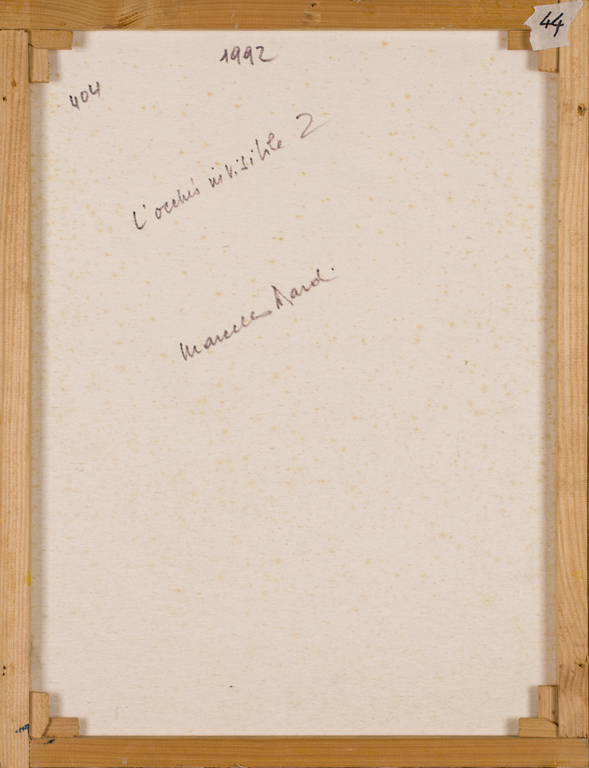 44
1992
404
L'occhio invisibile 2
Marcello